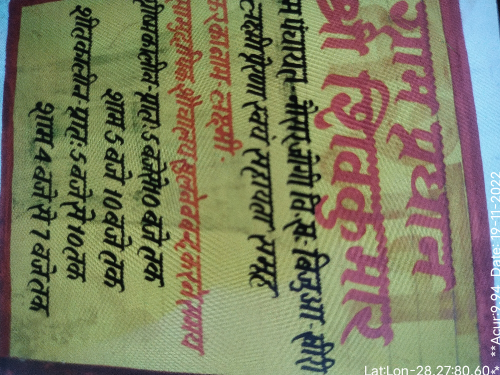 ग्राम प्रधान
श्री शिवकुमार
ग्राम पंचायत- वि.ख- बिजुआ-खीरी
स्वयं सहायता समूह
का नाम- लक्ष्मी
सामुदायिक शौचालय खुलने व बन्द करने का समय
ग्रीष्मकालीन- प्रातः 5 बजे से 10 बजे तक
शाम 5 बजे 10 बजे तक
शीतकालीन- प्रातः 5 बजे से 10 तक
शाम 4 बजे से 7 बजे तक
Lat:Lon-28.27:80.60*, **Acur:9.94, Date: 19-11-2022